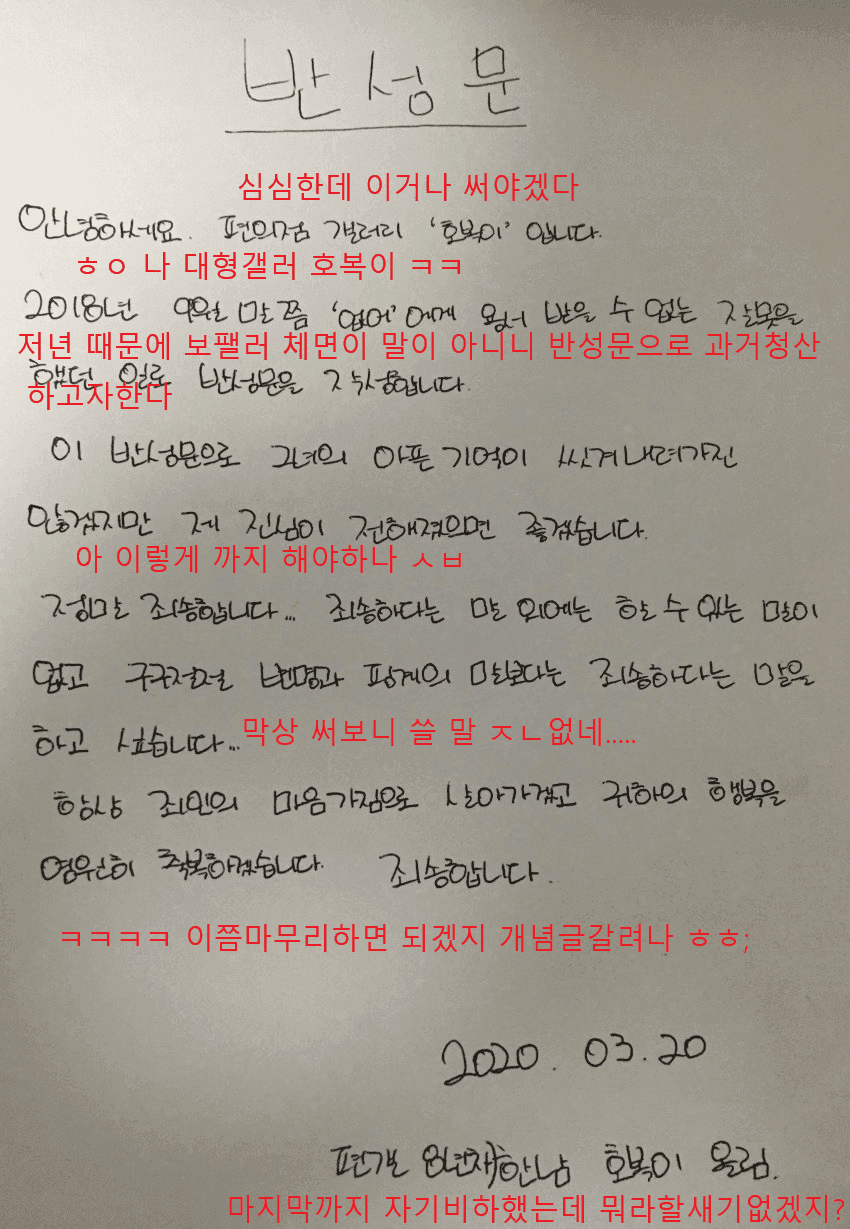 반성문
심심한데 이거나 써야겠다
안녕하세요. 편의점 갤러리 '호복이' 입니다.
ㅎㅇ 나 대형갤러 호복이 ㅋㅋ
2018년 9월 말쯤 '없어'에게 용서 받을 수 없는 잘못을
저년 때문에 보팰러 체면이 말이 아니니 반성문으로 과거청산
했던 일로 반성문을 작성합니다.
하고자한다
이 반성문으로 그녀의 아픈 기억이 씻겨내려가진
않겠지만 제 진심이 전해졌으면 좋겠습니다.
아 이렇게 까지 해야하나 ㅅㅂ
정말 죄송합니다... 죄송하다는 말 외에는 할 수 있는 말이
없고 구구절절 변명과 핑계의 말보다는 죄송하다는 말을
하고 싶습니다...
막상 써보니 쓸 말 ㅈㄴ없네.....
항상 죄인의 마음가짐으로 살아가겠고 귀하의 행복을
영원히 축복하겠습니다. 죄송합니다.
ㅋㅋㅋㅋ 이쯤마무리하면 되겠지 개념글갈려나 ㅎㅎ;
2020. 03. 20
편갤 8년차한남 호복이 올림.
마지막까지 자기비하했는데 뭐라할새기없겠지?